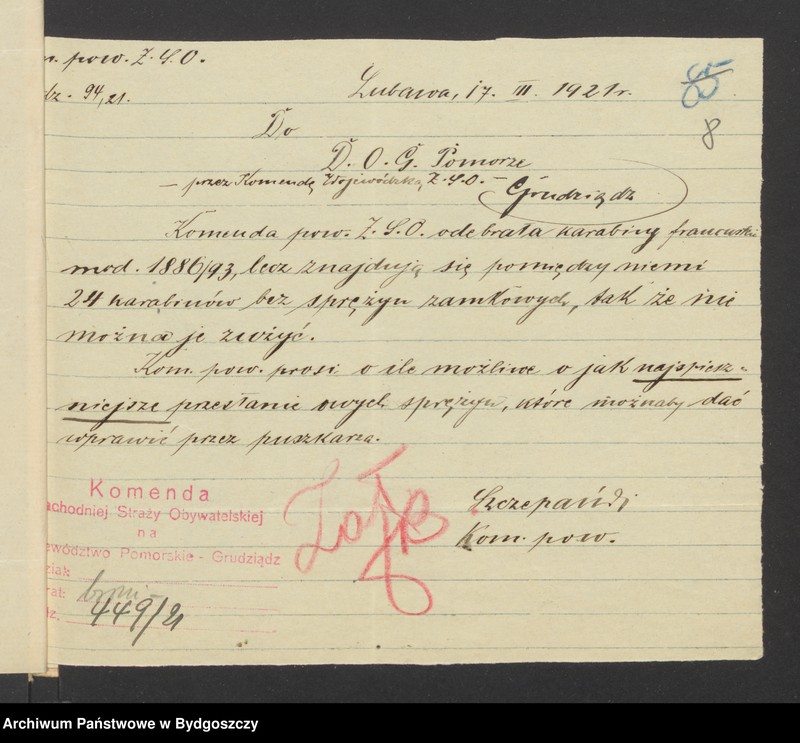 pow. Z.S.O.
dz. 94/21.
Lubawa, 17. III. 1921 r.
85
8
Do
D. O. G. Pomorze
— przez Komendę Wojewódzką Z.S.O. —
Grudziądz
Komenda pow. Z.S.O. odebrała karabiny francuskie
mod. 1886/93, lecz znajdują się pomiędzy niemi
24 karabinów bez sprężyn zamkowych, tak że nie
można je zużyć.
Kom. pow. prosi o ile możliwe o jak najspiesz-
niejsze przesłanie owych sprężyn, które możnaby dać
wprawić przez puszkarza.
Szczepański
Kom. pow.
Komenda
achodniej Straży Obywatelskiej
na
ewództwo Pomorskie - Grudziądz
ział:
rał:
dz. 449/21
Archiwum Państwowe w Bydgoszczy